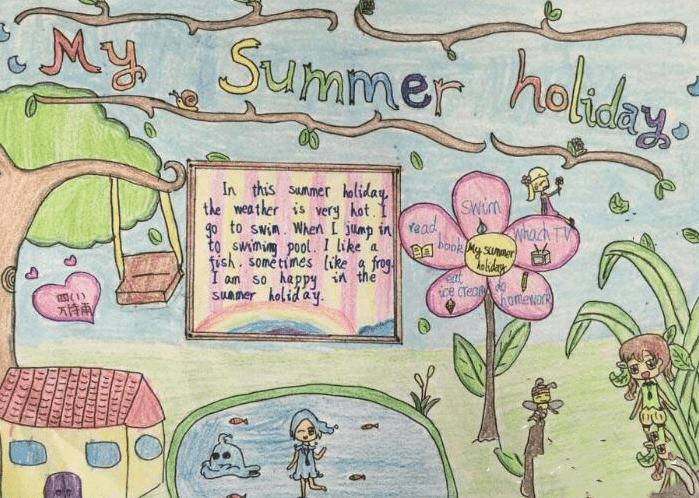 My Summer holiday
In this summer holiday,
the weather is very hot. I
go to swim. When I jump in
to swiming pool. I like a
fish. sometimes like a frog.
I am so happy in the
summer holiday.
swim
read
book
Whach TV
My summer
holiday
eat
ice cream
do
homework
四(1)